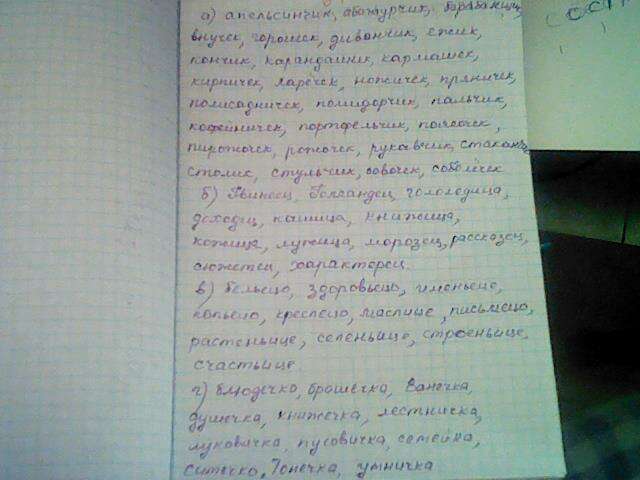 а) апельсинчик, абажурчик, барабанщик
внучек, горошек, диванчик, ёжик,
кончик, карандашик, кармашек,
кирпичек, ларёчек, ножичек, пряничек,
полисадничек, помидорчик, пальчик,
кофейничек, портфельчик, поясочек,
пирожочек, рожочек, рукавчик, стаканч
столик, стульчик, совочек, соболёчек
б) Голландец, гололедица,
доходец, кашица, книжица,
кожица, лужица, морозец, рассказец,
сюжетец, характерец.
в) бельецо, здоровьецо, именьеце,
копьецо, креслецо, маслице, письмецо,
растеньице, селеньице, строеньице,
счастьице.
г) блюдечко, брошечка, Ванечка,
душечка, книжечка, лестничка,
луковичка, пуговичка, семейка,
ситечко, Тонечка, умничка
сост